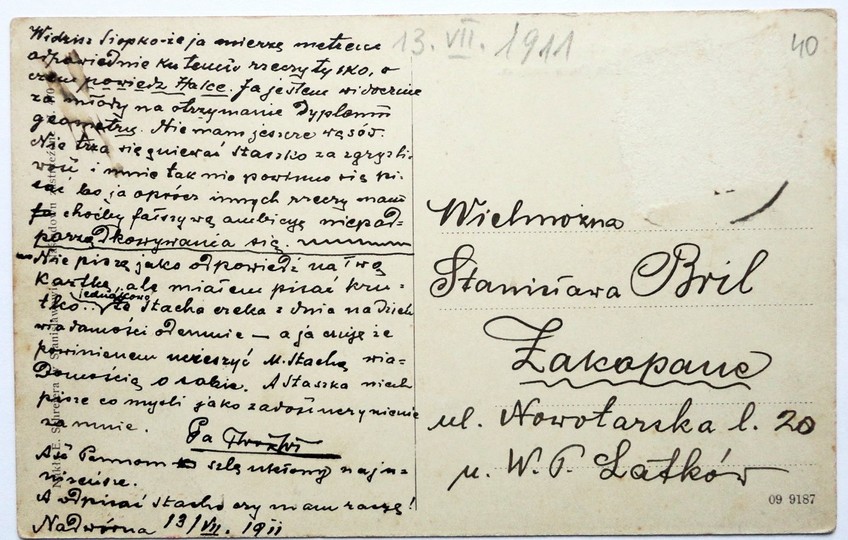 13. VII. 1911
40
Widzisz Siopko - że ja mierzę metrem
odpowiednie ku temu rzeczy tylko, o
czem powiedz Halce. Ja jestem widocznie
za młody na otrzymanie dyplomu
geometry. Nie mam jeszcze wąsów.
Nie trza się gniewać Staszko za zgryźli-
wość i mnie tak nie powinno się pi-
sać bo ja oprócz innych rzeczy mam
choćby fałszywą ambicyę niepod-
porządkowywania się.
Nie piszę jako odpowiedź na Twą
kartkę, ale miałem pisać kró-
tko.. jednakowo Stacha czeka z dnia na dzień
wiadomości odemnie — a ja czuję że
powinienem ucieszyć M. Stachę wia-
domością o sobie. A Staszka niech
pisze co myśli jako zadośćuczynienie
za mnie.
Pa
Asś Pannom szlę ukłony naju-
A odpisać Stacho czy mam raczę!
Nadwórna 13/VII. 1911
Wielmożna
Stanisława Bril
Zakopane
ul. Nowotarska l. 20
u. W. P. Latków
09 9187